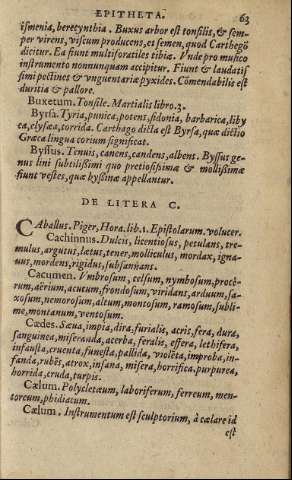 EPITHETA. 63
ismenia, berecynthia. Buxus arbor est tonsilis, & sem-
per virens, viscum producens, et semen, quod Carthego
dicitur. Ea fiunt multiforatiles tibiæ. Vnde pro musico
instrumento nonnunquam accipitur. Fiunt & laudatis
simi pectines & vnguentariæ pyxides. Cõmendabilis est
duritia & pallore.
Buxetum. Tonsile. Martialis libro.3.
Byrsa. Tyria, punica, potens, sidonia, barbarica, liby
ca, elysæa, torrida. Carthago dicta est Byrsa, quæ dictio
Græca lingua corium significat.
Byssus. Tenuis, canens, candens, albens. Byssus ge-
nus lini subtilissimi quo pretiosissimæ & mollissimæ
fiunt vestes, quæ byssinæ appellantur.
DE LITERA C.
CAballus. Piger, Hora. lib.1. Epistolarum. volucer.
Cachinnus. Dulcis, licentiosus, petulans, tre-
mulus, argutus, lætus, tener, molliculus, mordax, igna-
uus, mordens, rigidus, subsannans.
Cacumen. Vmbrosum, celsum, nymbosum, procê-
rum, aërium, acutum, frondosum, viridans, arduum, sa-
xosum, nemorosum, altum, montosum, ramosum, subli-
me, montanum, ventosum.
Cædes. Sæua, impia, dira, furialis, acris, fera, dura,
sanguinea, miseranda, acerba, feralis, effera, lethifera,
infausta, cruenta, funesta, pallida, violẽta, improba, in-
fanda, rubẽs, atrox, insana, misera, horrifica, purpurea,
horrida, cruda, turpis.
Cælum. Polycletæum, laboriferum, ferreum, men-
toreum, phidiacum.
Cælum. Instrumentum est sculptorium, à cælare id
est